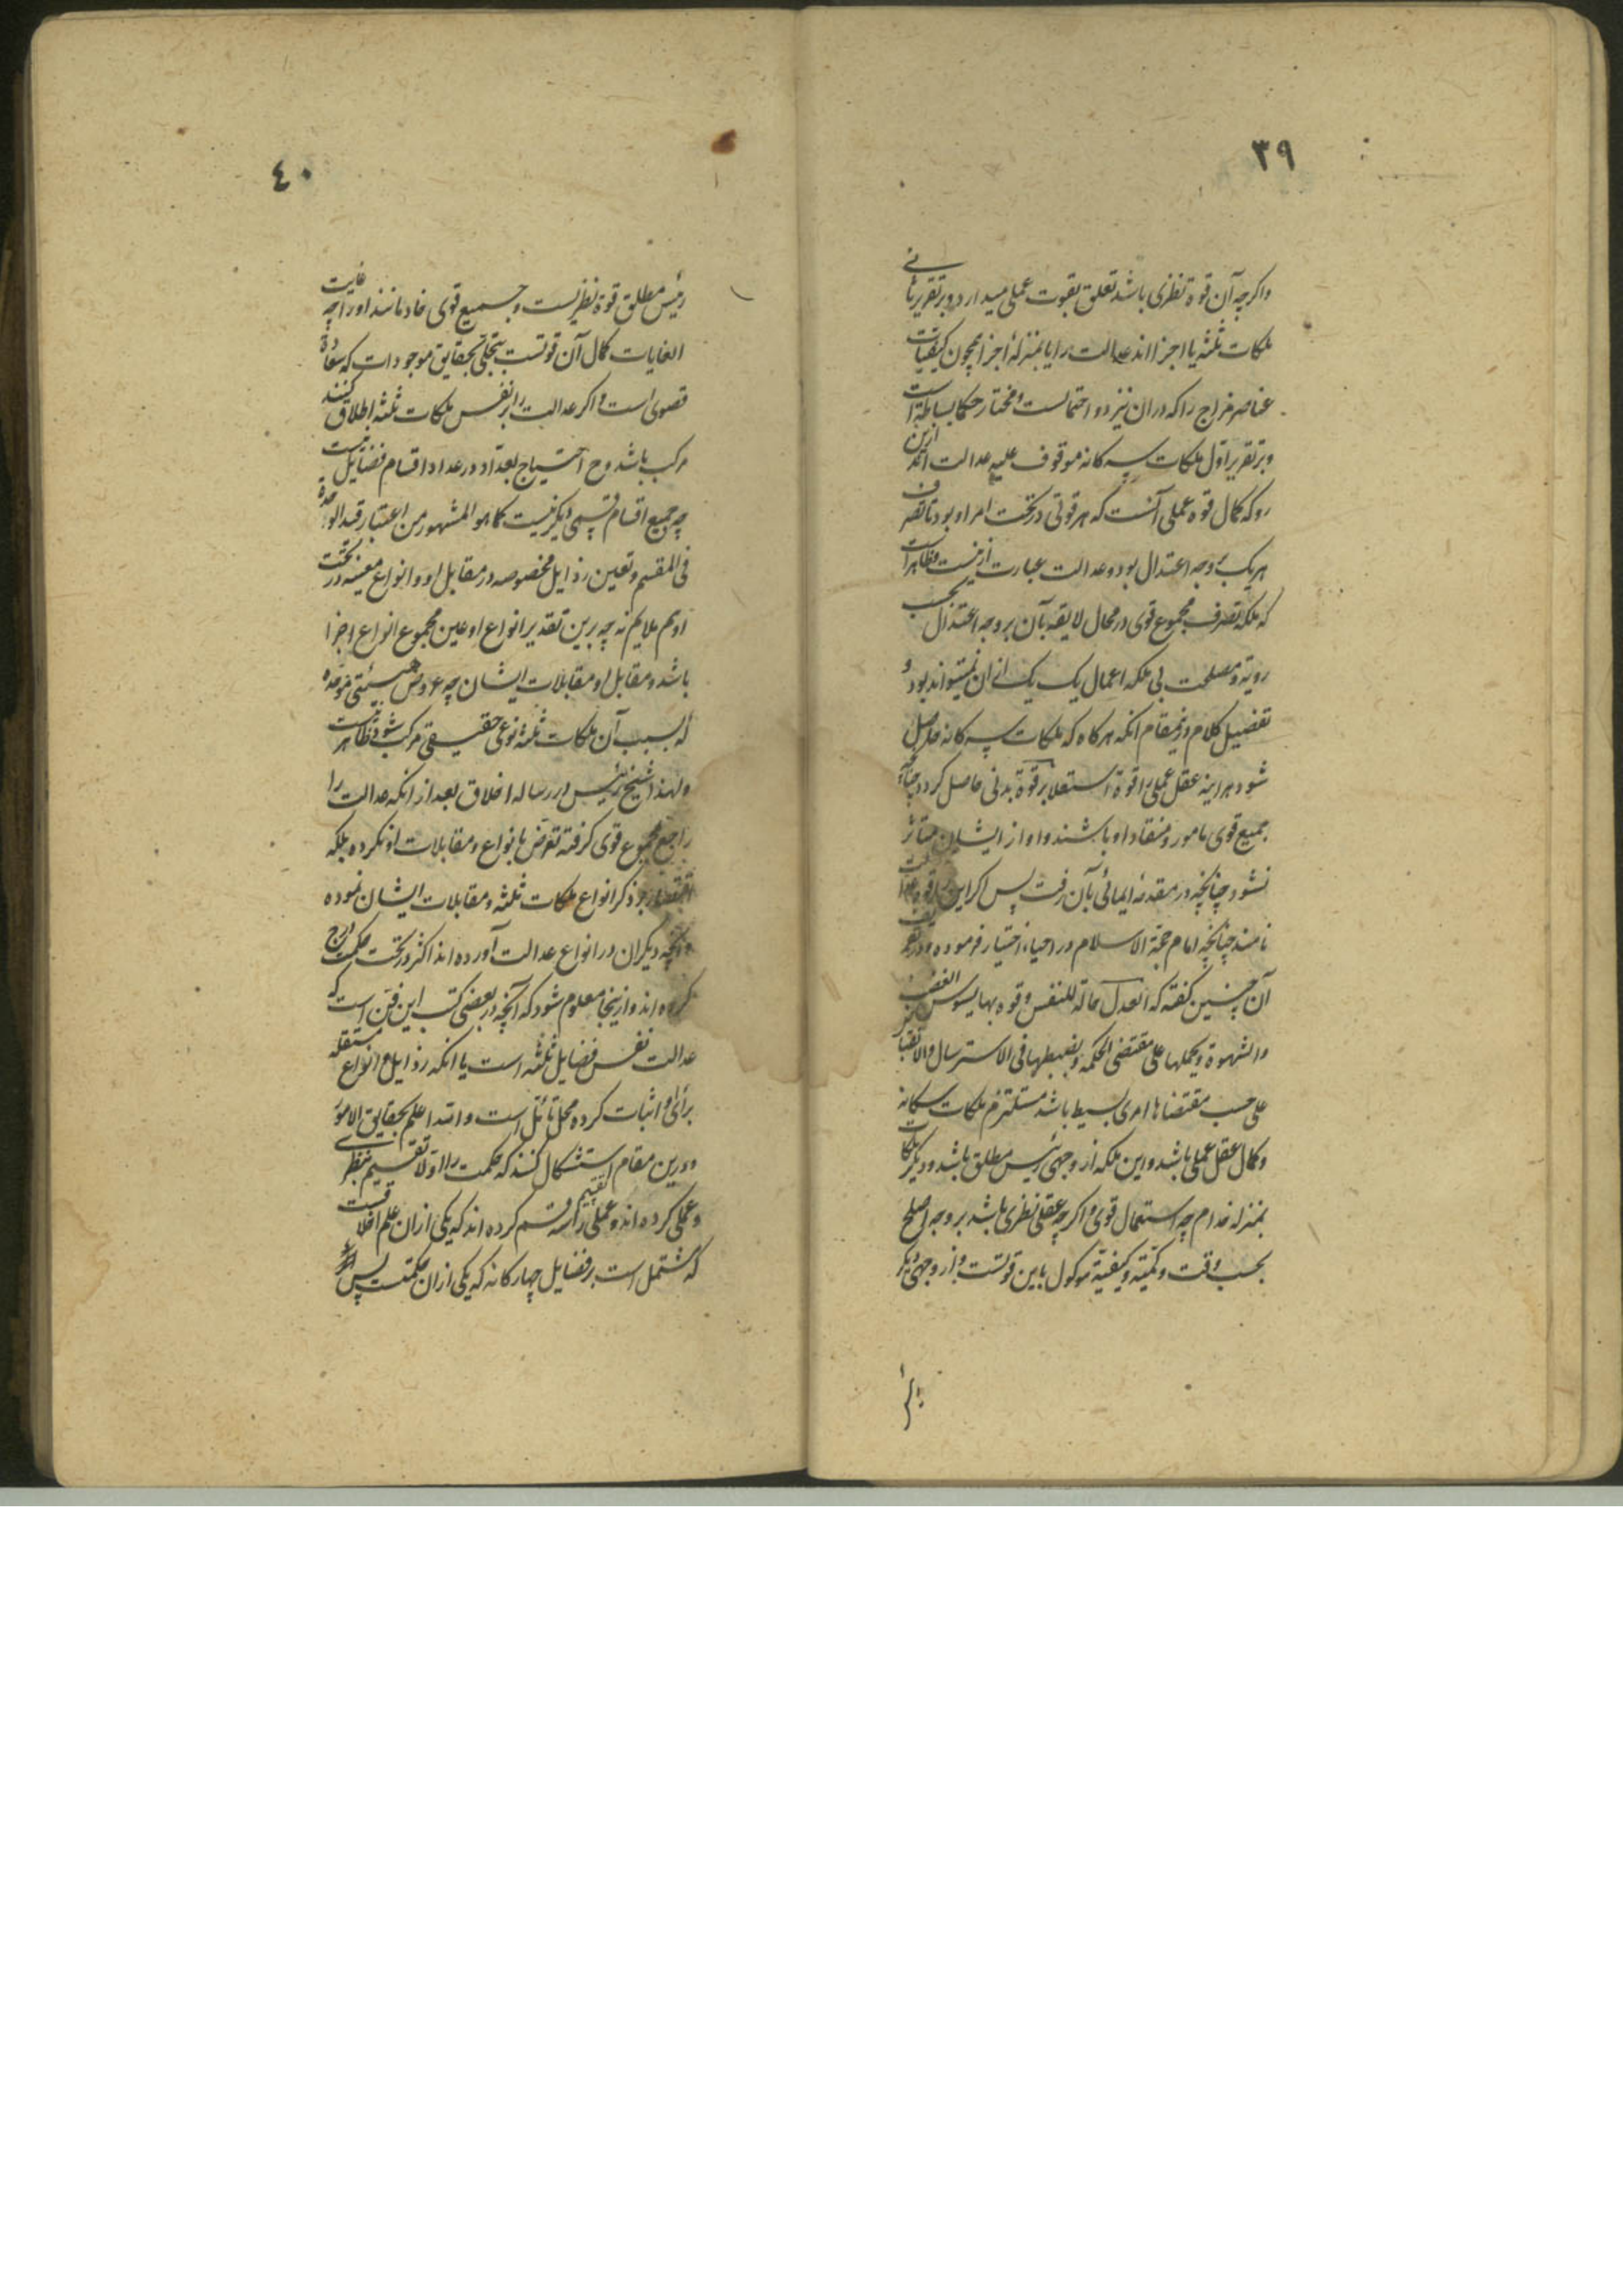 ٣٩
واکرچه آن قوة نظری باشد تعلق بقوت عملی میدارد و بر تقریر ثانی
ملکات ثلثه یا اجزااند عدالت را یا بمنزلهٔ اجزا همچون کیفیات
عناصر مزاج را که دران نیز دو احتمالست و مختار حکما بساطة است
و بر تقریر اول ملکات سه کانه موقوف علیه عدالت اند ازین
رو که کمال قوه عملی آنست که هر قوتی در تحت امر او بود تا تصرف
هریک بر وجه اعتدال بود و عدالت عبارت ازینست و ظاهر است
که ملکه تصرف مجموع قوی در محال لایقه بآن بر وجه اعتدال بحسب
رویة و مصلحت بی ملکه اعمال یک یک ازان نمیتواند بود و
تفصیل کلام درینمقام انکه هرکاه که ملکات سه کانه حاصل
شود هراینه عقل عملی را قوة استعلا بر قوة بدنی حاصل کردد چنانچه
جمیع قوی مامور و منقاد او باشند و او از ایشان متاثر
نشود چنانچه در مقدمه ایمائی بآن رفت پس اکر این قوه را عدالت
نامند چنانچه امام حجة الاسلام در احیاء اختیار فرموده و در تعریف
آن چنین کفته که العدل حالة للنفس و قوه بها یسوس الغضب
والشهوة و یحملها علی مقتضی الحکمه و یضبطها فی الاسترسال والانقباض
علی حسب مقتضاها امری بسیط باشد مستلزم ملکات سه کانه
و کمال عقل عملی باشد و این ملکه از وجهی رئیس مطلق باشد و دیکر ملکات
بمنزله خدام چه استعمال قوی و اکرچه عقل نظری باشد بر وجه اصلح
بحسب وقت و کمیة و کیفیة موکول باین قوتست و از وجهی دیکر
٤٠
رئیس مطلق قوة نظریست و جمیع قوی خادمانند اورا چه غایت
الغایات کمال آن قوتست بتجلی بحقایق موجودات که سعادة
قصوی است و اکر عدالت را بر نفس ملکات ثلثه اطلاق کنند
مرکب باشد و ح احتیاج بعداد در عداد اقسام فضایل نیست
چه جمیع اقسام قسمی دیکر نیست کما هو المشهور من اعتبار قید الوحدة
فی المقسم و تعین رذایل مخصوصه در مقابل او و انواع معینه در تحت
او هم ملایم نه چه برین تقدیر انواع او عین مجموع انواع اجزا
باشد و مقابل او مقابلات ایشان چه عروض هیئتی موحده
که بسبب آن ملکات ثلثه نوعی حقیقی مرکب شود ظاهر نیست
و لهذا شیخ رئیس در رساله اخلاق بعد از انکه عدالت را
راجع مجموع قوی کرفته تعرض بانواع و مقابلات او نکرده بلکه
اقتصار بر ذکر انواع ملکات ثلثه و مقابلات ایشان نموده
و آنچه دیکران در انواع عدالت آورده اند اکثر در تحت حکمت درج
کرده اند و ازینجا معلوم شود که آنچه در بعضی کتب این فن است که
عدالت نفس فضایل ثلثه است یا انکه رذایل و انواع مستقله
برای او اثبات کرده محل تأمل است و الله اعلم بحقایق الامور
و درین مقام استشکال کنند که حکمت را اولا تقسیم بنظری
و عملی کرده اند و عملی را تقسیم سه قسم کرده اند که یکی ازان علم اخلاقست
که مشتمل است بر فضایل چهارکانه که یکی ازان حکمتست پس